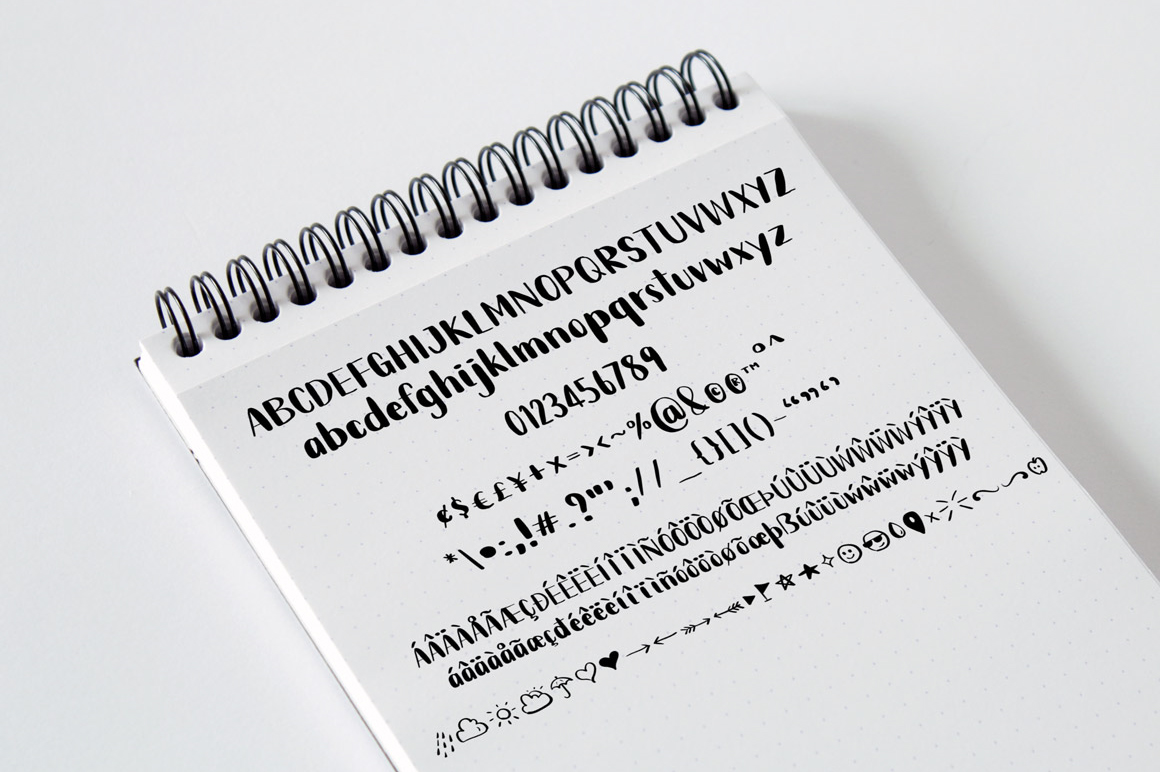 ABCDEFGHIJKLMNOPQRSTUVWXYZ
abcdefghijklmnopqrstuvwxyz
0123456789
¢$€£¥+×=><~%@&©®™°^
*\•:,!#.?"' ;// _{}[]()-“”‘’
ÁÂÄÀÅÃÆÇÐÉÊËÈÍÎÏÌÑÓÔÖÒØÕŒÞÚÛÜÙẂŴẄẀÝŶŸỲ
áâäàåãæçđéêëèíîïìñóôöòøõœþßúûüùẃŵẅẁýŷÿỳ